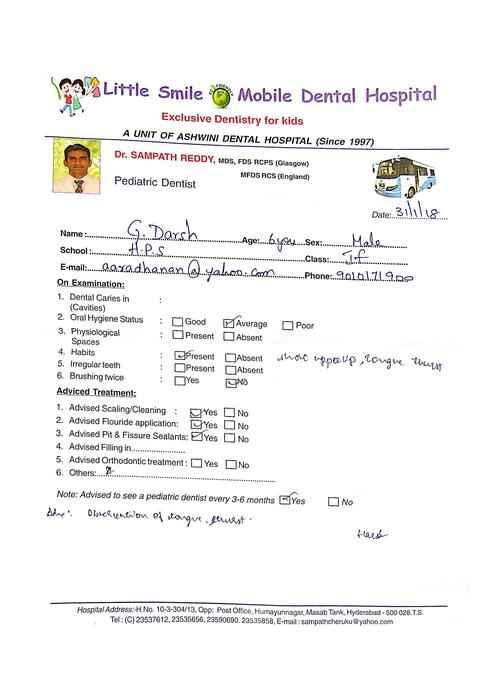 Little Smile Mobile Dental Hospital
Exclusive Dentistry for kids
A UNIT OF ASHWINI DENTAL HOSPITAL (Since 1997)
Dr. SAMPATH REDDY, MDS, FDS RCPS (Glasgow)
MFDS RCS (England)
Pediatric Dentist
Date: 31/1/18
Name: G. Darsh Age: 6yrs Sex: Male
School: H.P.S Class: I.f
E-mail: aaradhanan@yahoo.com Phone: 9010171900
On Examination:
1. Dental Caries in (Cavities) :
2. Oral Hygiene Status : Good Average Poor
3. Physiological Spaces : Present Absent
4. Habits : Present Absent short upper lip, tongue thrust
5. Irregular teeth : Present Absent
6. Brushing twice : Yes No
Adviced Treatment:
1. Advised Scaling/Cleaning : Yes No
2. Advised Flouride application: Yes No
3. Advised Pit & Fissure Sealants: Yes No
4. Advised Filling in
5. Advised Orthodontic treatment : Yes No
6. Others:
Note: Advised to see a pediatric dentist every 3-6 months Yes No
of tongue thrust.
Hospital Address:-H.No. 10-3-304/13, Opp: Post Office, Humayunnagar, Masab Tank, Hyderabad - 500 028.T.S.
Tel : (C) 23537612, 23535656, 23590690. 23535858, E-mail : sampathcheruku@yahoo.com